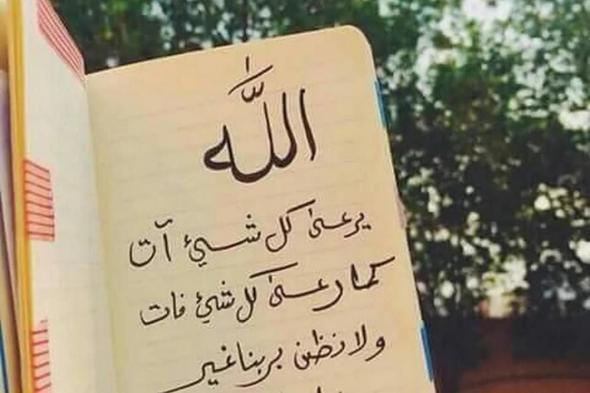 الله
يرعىٰ كل شيئ آت
كما رعىٰ كل شيئ فات
ولا نظن بربنا غير